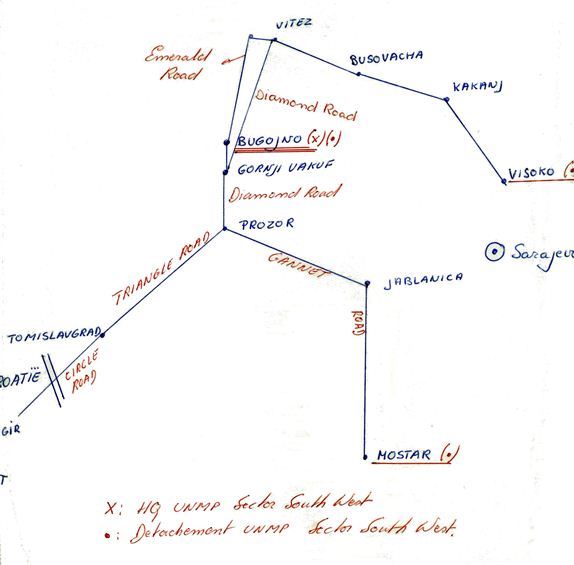 VITEZ
Emerald
Road
BUSOVACHA
KAKANJ
Diamond Road
BUGOJNO (x)(•)
GORNJI VAKUF
VISOKO (•
Diamond Road
PROZOR
TRIANGLE ROAD
GANNET
Sarajev
JABLANICA
ROAD
TOMISLAVGRAD
ROATIË
CIRCLE
ROAD
GIR
MOSTAR (•)
T
X: HQ UNMP Sector South West
•: Detachement UNMP Sector South West.